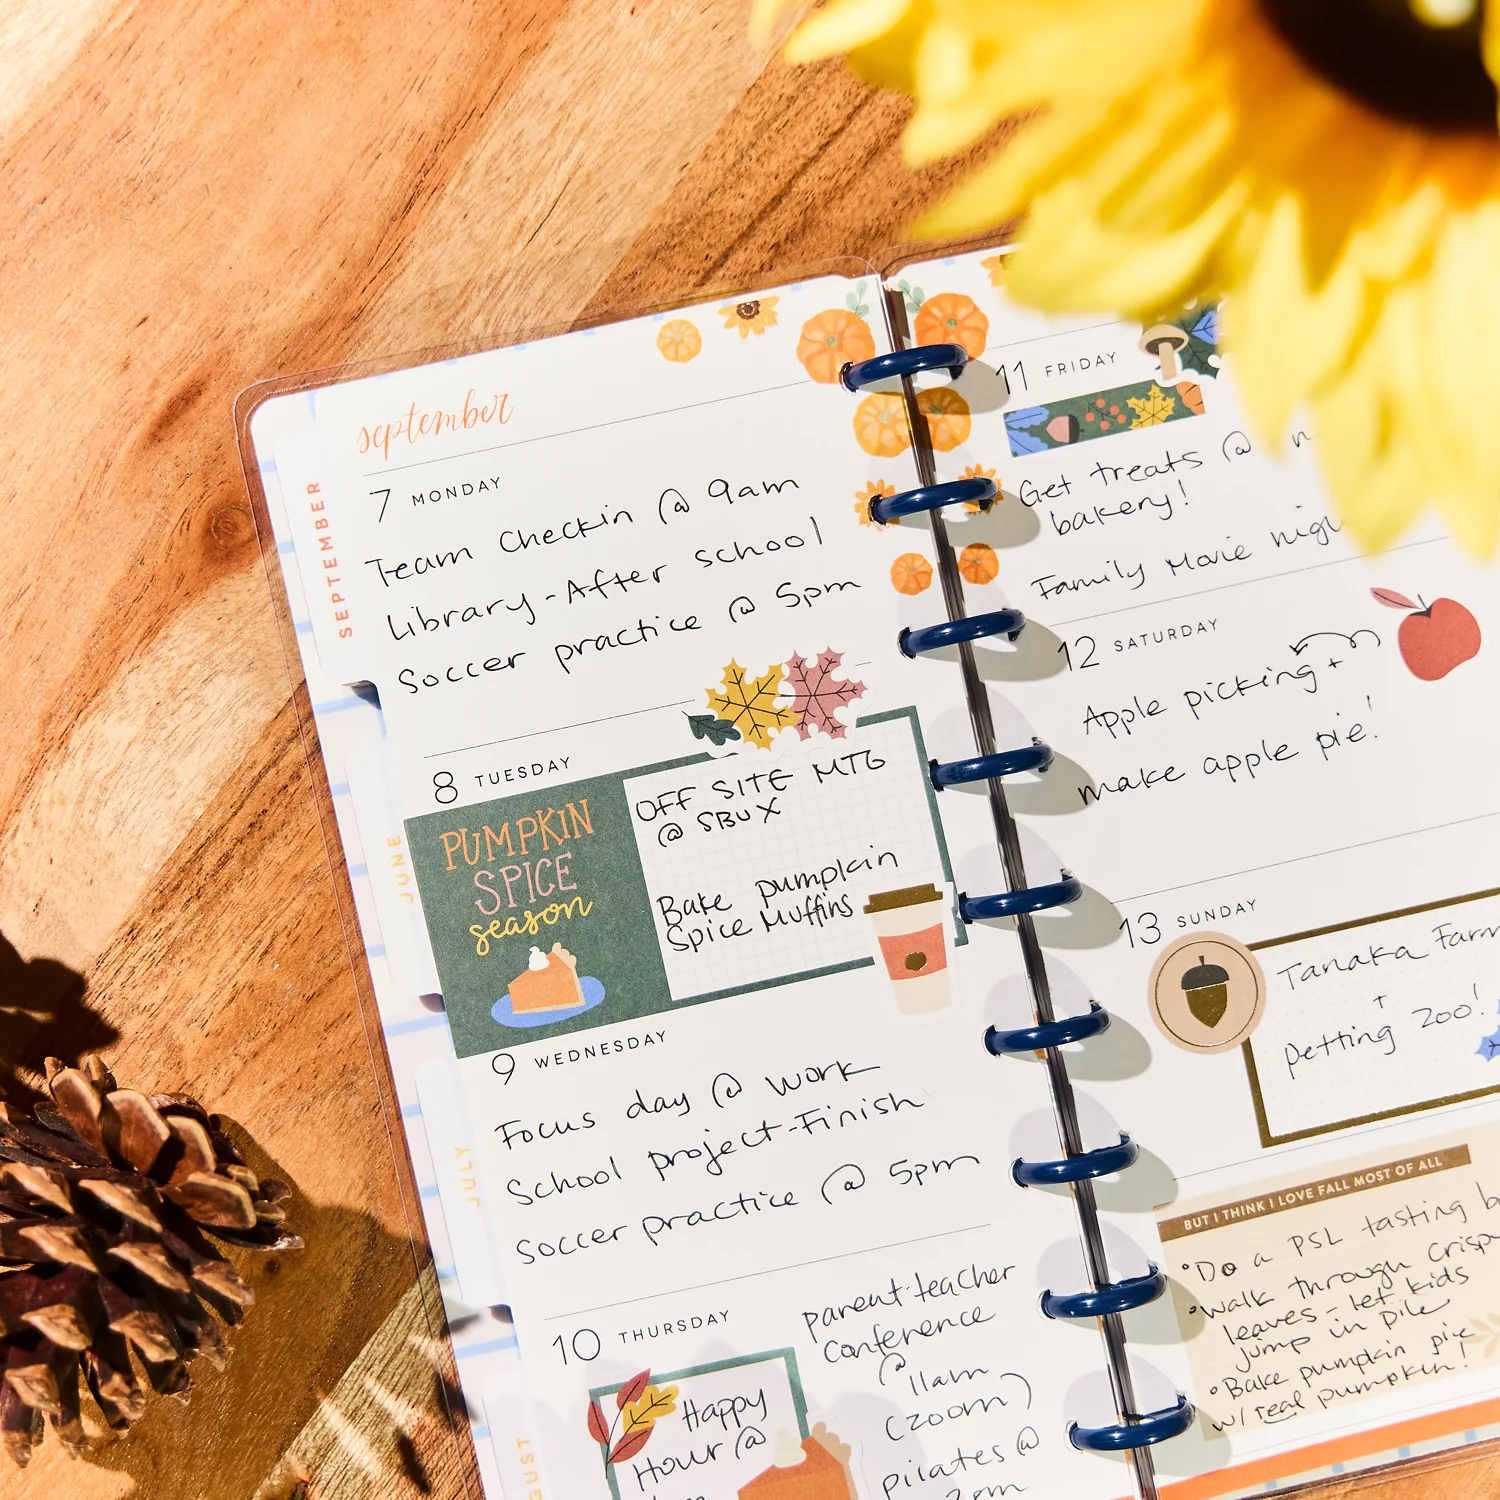 september
SEPTEMBER
7 MONDAY
Team Checkin @ 9am
Library-After school
Soccer practice @ 5pm
8 TUESDAY
PUMPKIN
SPICE
season
OFF SITE MTG
@ SBUX
Bake pumpkin
Spice Muffins
JUNE
9 WEDNESDAY
Focus day @ work
School project-Finish
Soccer practice @ 5pm
JULY
10 THURSDAY
Happy
Hour @
parent-teacher
Conference
@
11am
(zoom)
pilates @
2pm
11 FRIDAY
Get treats @
bakery!
Family Movie
12 SATURDAY
Apple picking +
make apple pie!
13 SUNDAY
Tanaka
+
petting zoo!
BUT I THINK I LOVE FALL MOST OF ALL
• Do a PSL tasting
• Walk through crispy
leaves - let kids
jump in pile
• Bake pumpkin pie
w/ real pumpkin!